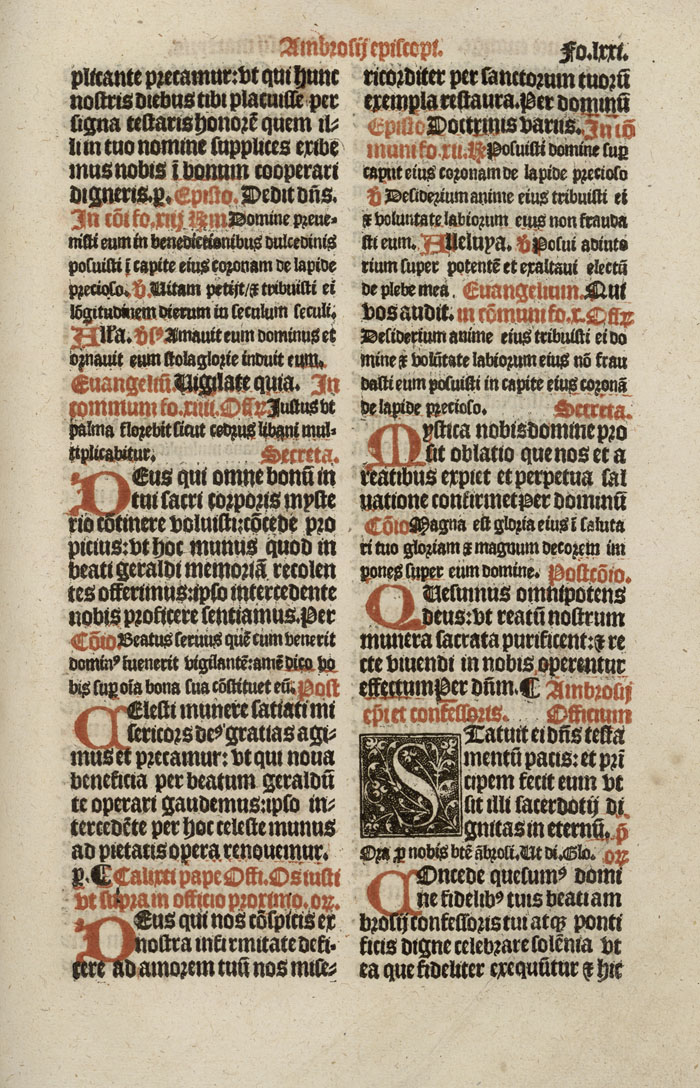 Ambrosij episcopi. Fo.lxxi.
plicante precamur:vt qui hunc
nostris diebus tibi placuisse per
signa testaris honorē quem il-
li in tuo nomine supplices exibe
mus nobis ī bonum cooperari
digneris.p. Episto. Dedit dn̄s.
In cōi fo.xiij Rm Domine preue-
nisti eum in benedictionibus dulcedinis
posuisti ī capite eius coronam de lapide
precioso. v. Uitam petijt/et tribuisti ei
lōgitudinem dierum in seculum seculi.
Alla. vs Amauit eum dominus et
ornauit eum stola glorie induit eum.
Euangeliū. Uigilate quia. In
commum fo.xiii. Offr Justus vt
palma florebit sicut cedrus libani mul-
tiplicabitur. Secreta.
DEus qui omne bonū in
tui sacri corporis myste
rio cōtinere voluisti:cōcede pro
picius:vt hoc munus quod in
beati geraldi memoriā recolen
tes offerimus:ipso intercedente
nobis proficere sentiamus.Per
Cōio Beatus seruus quē cum venerit
domin⁹ īuenerit vigilantē:amē dico vo
bis suꝑ oīa bona sua cōstituet eū. Post
CElesti munere satiati mi
sericors de⁹ gratias agi-
mus et precamur: vt qui noua
beneficia per beatum geraldū
te operari gaudemus:ipso in-
tercedēte per hoc celeste munus
ad pietatis opera renouemur.
p. ¶ Calixti pape Offi. Os iusti
vt supra in officio proximo. or.
DEus qui nos cōspicis ex
nostra infirmitate defi-
cere ad amorem tuū nos mise-
ricorditer per sanctorum tuorū
exempla restaura.Per dominū
Episto Doctrinis variis. In cō
muni fo.xii. R Posuisti domine suꝑ
caput eius coronam de lapide precioso
v Desiderium anime eius tribuisti ei
et voluntate labiorum eius non frauda
sti eum. Alleluya. v Posui adiuto
rium super potentē et exaltaui electū
de plebe mea. Euangelium. Qui
vos audit. in cōmuni fo.x. Offr
Desiderium anime eius tribuisti ei do
mine et volūtate labiorum eius nō frau
dasti eum posuisti in capite eius coronā
de lapide precioso. Secreta.
MYstica nobis domine pro
sit oblatio que nos et a
reatibus expiet et perpetua sal
uatione confirmet Per dominū
Cōio Magna est gloria eius ī saluta
ri tuo gloriam et magnum decorem im
pones super eum domine. Postcōio.
QUesumus omnipotens
deus:vt reatū nostrum
munera sacrata purificent:et re
cte viuendi in nobis operentur
effectum Per dn̄m. ¶ Ambrosij
ep̄i et confessoris. Officium
STatuit ei dn̄s testa
mentū pacis: et prī
cipem fecit eum vt
sit illi sacerdotij di
gnitas in eternū. p̄
Ora ꝓ nobis btē āb̄rosi. Ut di. Glo. or
COncede quesum⁹ domi
ne fidelib⁹ tuis beati am
brosij confessoris tui atqꝫ ponti
ficis digne celebrare solēnia vt
ea que fideliter exequūtur et hic